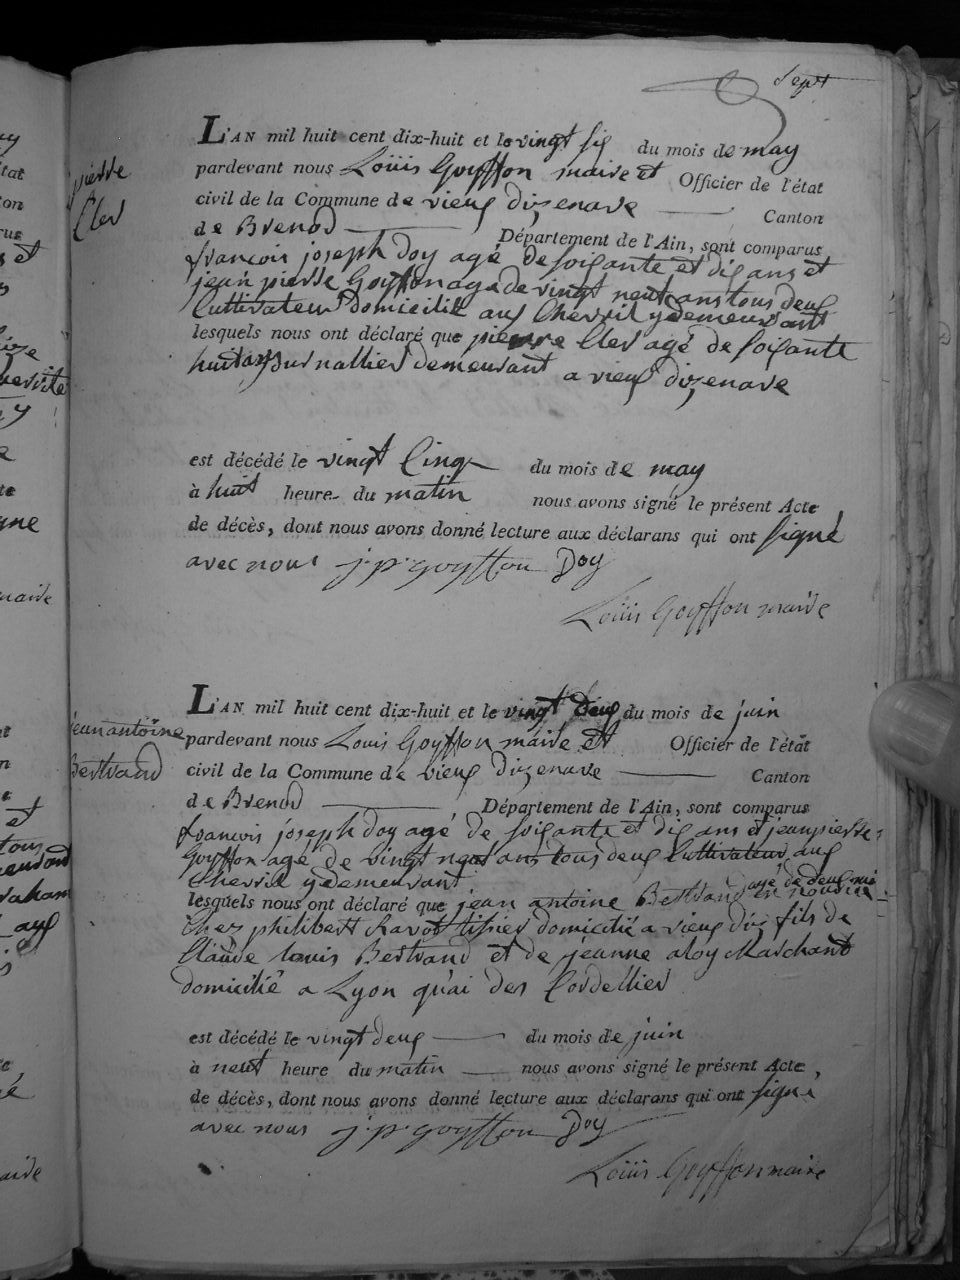 Sept
pierre
Cler
L'AN mil huit cent dix-huit et le vingt six du mois de may
pardevant nous Loüis Goyffon maire et Officier de l'état
civil de la Commune de vieux dizenave Canton
de Brenod Département de l'Ain, sont comparus
françois joseph Doy agé de soixante et dix ans et
jean pierre Goyffon agé de vingt neuf ans tous deux
Cultivateur domicilié aux Chevril y demeurant
lesquels nous ont déclaré que pierre Cler agé de soixante
huit ans journallier demeurant a vieux dizenave
est décédé le vingt Cinq du mois de may
à huit heure du matin nous avons signé le présent Acte
de décès, dont nous avons donné lecture aux déclarans qui ont signé
avec nous j.p. goyffon Doy
Loüis Goyffon maire
jean antoine
Bertrand
L'AN mil huit cent dix-huit et le vingt deux du mois de juin
pardevant nous Louis Goyffon maire et Officier de l'état
civil de la Commune de vieux dizenave Canton
de Brenod Département de l'Ain, sont comparus
françois joseph doy agé de soixante et dix ans et jean pierre
Goyffon agé de vingt neuf ans tous deux Cultivateur aux
Chevril y demeurant
lesquels nous ont déclaré que jean antoine Bertrand agé de deux en nourice
Chez philibert Ravot tissier domicilié a vieux diz fils de
Claude louis Bertrand et de jeanne aloy Marchant
domicilié a Lyon quai des Cordellier
est décédé le vingt deux du mois de juin
à neuf heure du matin nous avons signé le présent Acte,
de décès, dont nous avons donné lecture aux déclarans qui ont signé
avec nous j.p. goyffon Doy
Loüis Goyffon maire